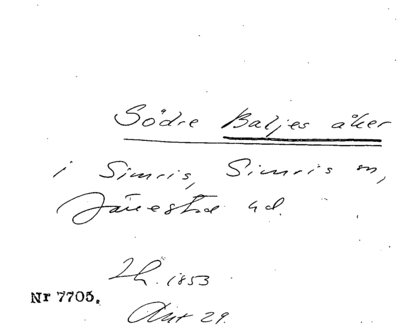 Södre Baljes åker
i Simris, Simris sn,
Järrestad hd.
Lh. 1853
Nr 7705.
Akt 29.